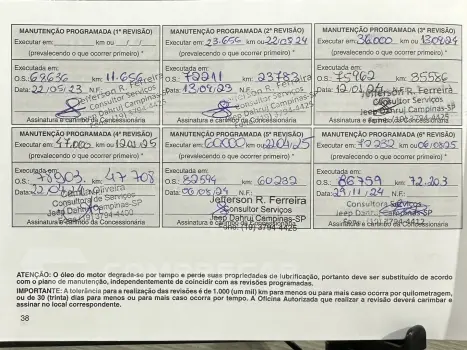 MANUTENÇÃO PROGRAMADA (1ª REVISÃO)
Executar em: km ou / /
(prevalecendo o que ocorrer primeiro) *
Executada em:
O.S.: 69636 km: 11.656
Data: 22/05/23 N.F.
Jefferson R. Ferreira
Consultor Serviços
Jeep Dahruj Campinas-SP
Assinatura e carimbo da Concessionária
MANUTENÇÃO PROGRAMADA (2ª REVISÃO)
Executar em: 23.656 km ou 22/05/24
(prevalecendo o que ocorrer primeiro) *
Executada em:
O.S.: 72241 km: 23783
Data: 13/09/23 N.F.
Jefferson R. Ferreira
Consultor Serviços
Jeep Dahruj Campinas-SP
Assinatura e carimbo da Concessionária
MANUTENÇÃO PROGRAMADA (3ª REVISÃO)
Executar em: 36.000 km ou 13/09/24
(prevalecendo o que ocorrer primeiro) *
Executada em:
O.S.: 75962 km: 35586
Data: 12/01/24 N.F.
Jefferson R. Ferreira
Consultor Serviços
Jeep Dahruj Campinas-SP
Assinatura e carimbo da Concessionária
MANUTENÇÃO PROGRAMADA (4ª REVISÃO)
Executar em: 47.000 km ou 12/01/25
(prevalecendo o que ocorrer primeiro) *
Executada em:
O.S.: 78903 km: 47 708
Data: 22/04/24
Oliveira
Consultora de Serviços
Jeep Dahruj Campinas-SP
Assinatura e carimbo da Concessionária
MANUTENÇÃO PROGRAMADA (5ª REVISÃO)
Executar em: 60000 km ou 22/04/25
(prevalecendo o que ocorrer primeiro) *
Executada em:
O.S.: 82594 km: 60232
Data: 06/08/24 N.F.:
Jefferson R. Ferreira
Consultor Serviços
Jeep Dahruj Campinas-SP
Assinatura e carimbo da Concessionária
Fone: (19) 3794-4425
MANUTENÇÃO PROGRAMADA (6ª REVISÃO)
Executar em: 72232 km ou 06/08/25
(prevalecendo o que ocorrer primeiro) *
Executada em:
O.S.: 86759 km: 72.203
Data: 29/11/24 N.F.
Consultora Serviços
Jeep Dahruj Campinas-SP
Assinatura e carimbo da Concessionária
ATENÇÃO: O óleo do motor degrada-se por tempo e perde suas propriedades de lubrificação, portanto deve ser substituído de acordo
com o plano de manutenção, independentemente de coincidir com as revisões programadas.
IMPORTANTE: A tolerância para a realização das revisões é de 1.000 (um mil) km para menos ou para mais caso ocorra por quilometragem,
ou de 30 (trinta) dias para menos ou para mais caso ocorra por tempo. A Oficina Autorizada que realizar a revisão deverá carimbar e
assinar no local correspondente.
38